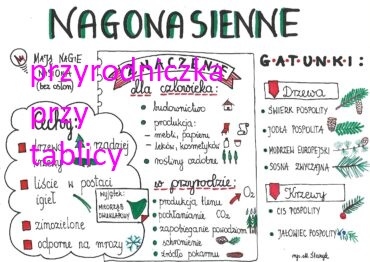 NAGONASIENNE
MAJĄ NAGIE
(bez osłon)
przyrodniczka
przy
tablicy
Cechy:
drzewa, rzadziej
krzewy
liście w postaci
igieł
zimozielone
odporne na mrozy
wyjątek:
MIŁORZĄB
DWUKLAPOWY
ZNACZENIE
dla człowieka:
budownictwo
produkcja:
- mebli, papieru
- leków, kosmetyków
rośliny ozdobne
w przyrodzie:
produkcja tlenu
O2
pochłanianie CO2
zapobieganie powodziom
schronienie
źródło pokarmu
GATUNKI:
Drzewa
ŚWIERK POSPOLITY
JODŁA POSPOLITA
MODRZEW EUROPEJSKI
SOSNA ZWYCZAJNA
Krzewy
CIS POSPOLITY
JAŁOWIEC POSPOLITY